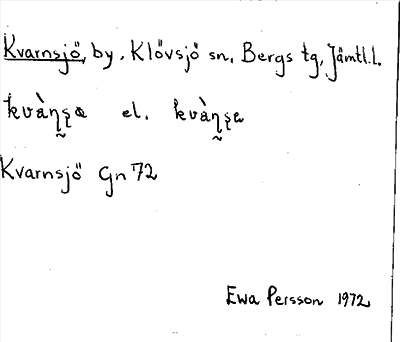 Kvarnsjö, by, Klövsjö sn, Bergs tg, Jämtl.l.
el.
Kvarnsjö Gn 72
Ewa Persson 1972